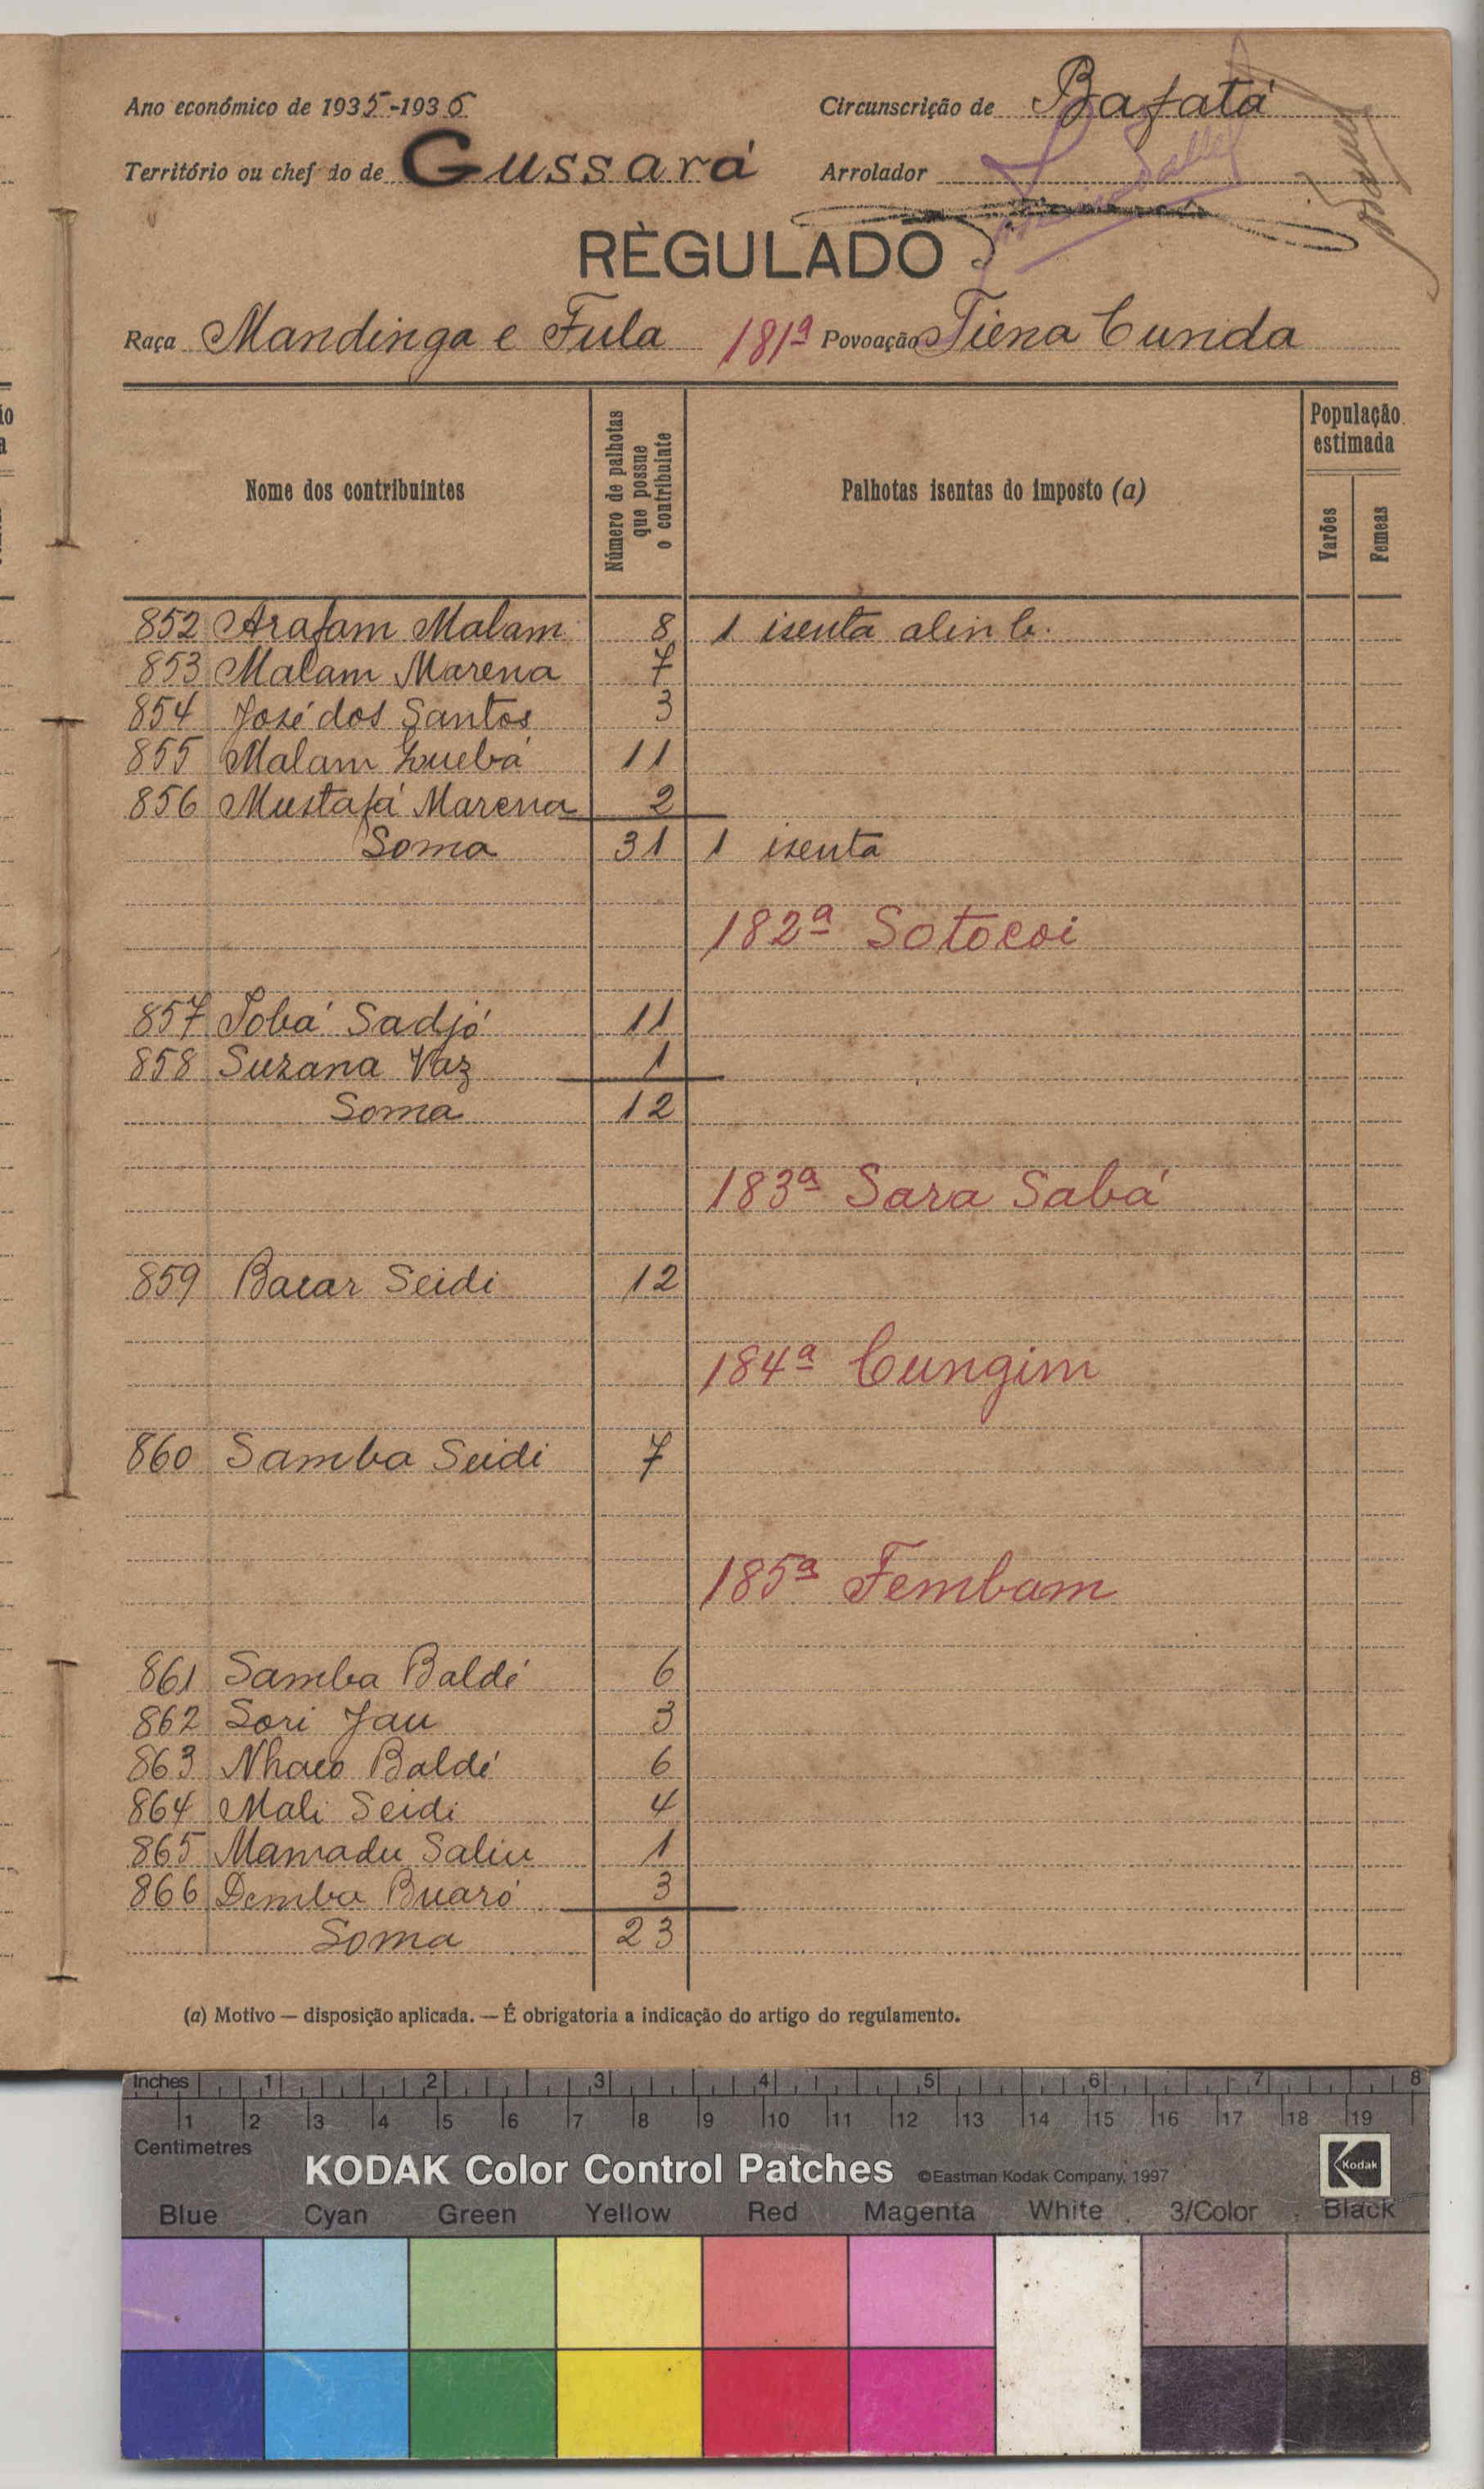 Ano económico de 1935-1936
Circunscrição de Bafatá
Território ou chef do de Gussará
Arrolador
RÈGULADO
Raça Mandinga e Fula 181ª Povoação Tiena Cunda
Nome dos contribuintes
Número de palhotas que possue o contribuinte
Palhotas isentas do imposto (a)
População estimada
Varões
Femeas
852 Arafam Malam 8 1 isenta alin b.
853 Malam Marena 7
854 José dos Santos 3
855 Malam 11
856 Mustafá Marena 2
Soma 31 1 isenta
182ª Sotocoi
857 Jobá Sadjó 11
858 Suzana Vaz 1
Soma 12
183ª Sara Sabá
859 Bacar Seidi 12
184ª Cungim
860 Samba Seidi 7
185ª Fembam
861 Samba Baldé 6
862 Sori Jau 3
863 Nhaco Baldé 6
864 Mali Seidi 4
865 Mamadu Saliu 1
866 Demba Buaró 3
Soma 23
(a) Motivo — disposição aplicada. — É obrigatoria a indicação do artigo do regulamento.
Inches 1 2 3 4 5 6 7 8
1 2 3 4 5 6 7 8 9 10 11 12 13 14 15 16 17 18 19
Centimetres
KODAK Color Control Patches ©Eastman Kodak Company, 1997 Kodak
Blue Cyan Green Yellow Red Magenta White 3/Color Black